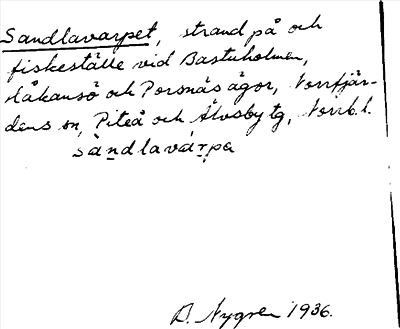 Sandlavarpet, strand på och
fiskeställe vid Bastuholmen,
Håkansö och Porsnäs ägor, Norrfjär-
dens sn, Piteå och Älvsby tg, Norrb. l.
sàndlavárpa
D. Nygren 1936.